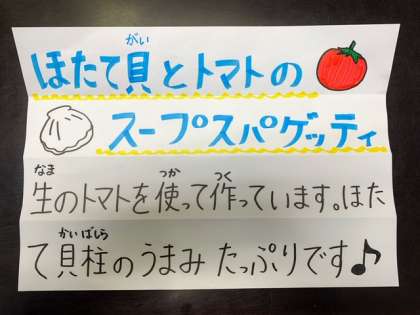 がい
ほたて貝とトマトの
スープスパゲッティ
なま つか つく
生のトマトを使って作っています。ほた
かいばしら
て貝柱のうまみたっぷりです♪